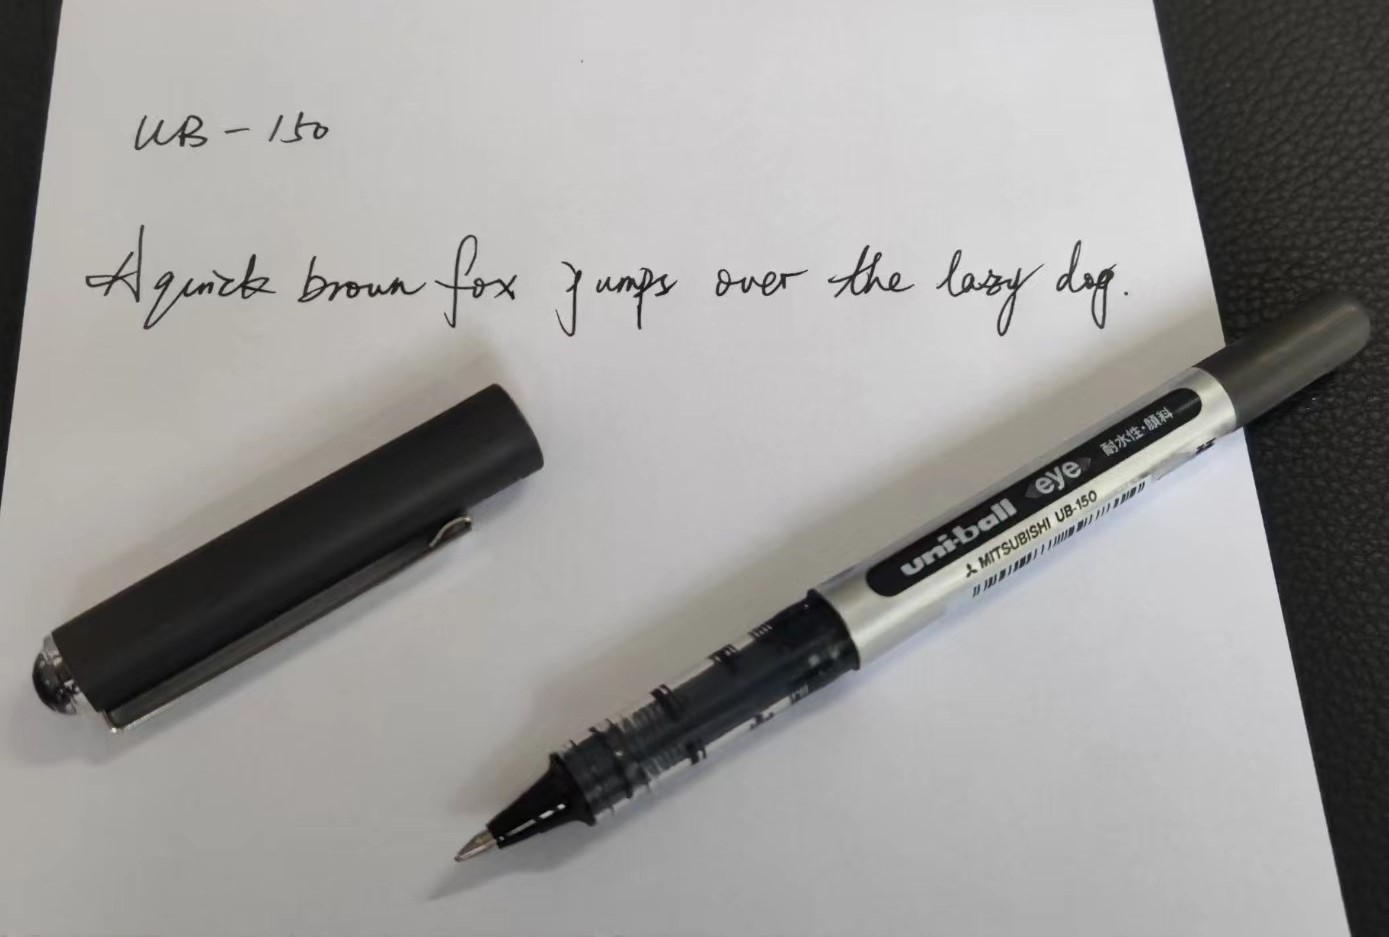 UB-150
A quick brown fox jumps over the lazy dog.
uni-ball eye 耐水性・顔料
MITSUBISHI UB-150